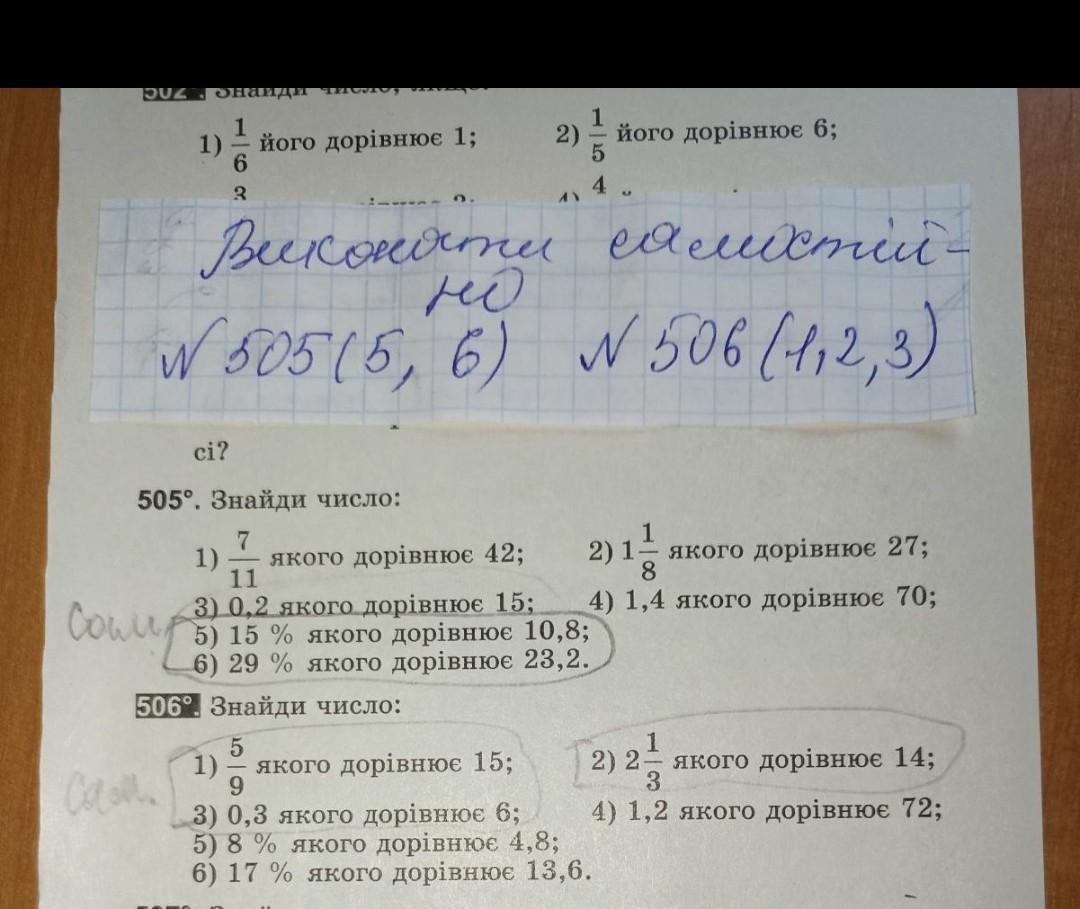 502°. Знайди число, якщо:
1) 1/6 його дорівнює 1; 2) 1/5 його дорівнює 6;
3 4
Виконати самостій-
но
№ 505 (5, 6) № 506 (1,2,3)
сі?
505°. Знайди число:
1) 7/11 якого дорівнює 42; 2) 1 1/8 якого дорівнює 27;
3) 0,2 якого дорівнює 15; 4) 1,4 якого дорівнює 70;
Сам.
5) 15 % якого дорівнює 10,8;
6) 29 % якого дорівнює 23,2.
506°. Знайди число:
1) 5/9 якого дорівнює 15; 2) 2 1/3 якого дорівнює 14;
Сам.
3) 0,3 якого дорівнює 6; 4) 1,2 якого дорівнює 72;
5) 8 % якого дорівнює 4,8;
6) 17 % якого дорівнює 13,6.